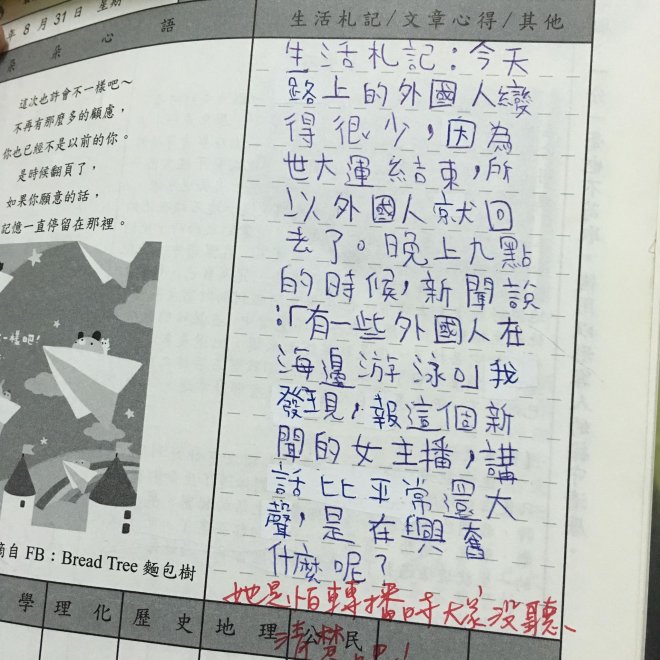 年 8 月 31 日 星期
朵 朵 心 語
這次也許會不一樣吧～
不再有那麼多的顧慮，
你也已經不是以前的你。
是時候翻頁了，
如果你願意的話，
記憶一直停留在那裡。
一樣吧！
摘自 FB：Bread Tree 麵包樹
生活札記/文章心得/其他
生活札記：今天
路上的外國人變
得很少，因為
世大運結束，所
以外國人就回
去了。晚上九點
的時候，新聞說
：「有一些外國人在
海邊游泳。」我
發現，報這個新
聞的女主播，講
話比平常還大
聲，是在興奮
什麼呢？
她是怕轉播時大家沒聽
清楚吧！
學 理化 歷史 地理 公民